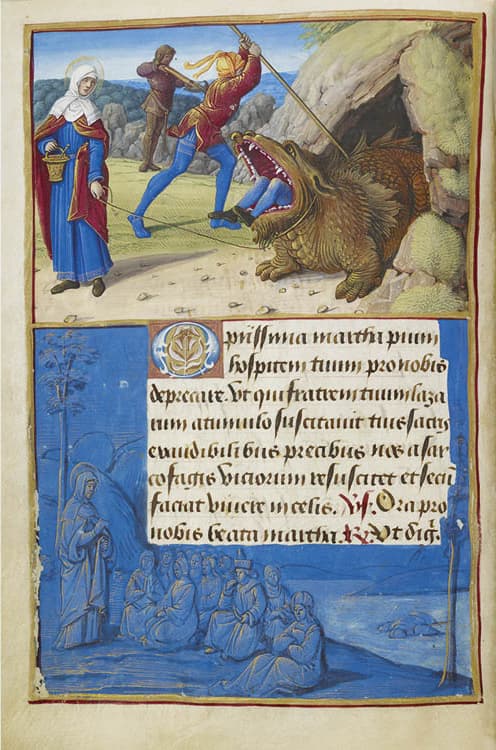 O piissima martha pium
hospitem tuum pro nobis
deprecare. Ut qui fratrem tuum laza
rum a tumulo suscitavit tuis sacris
exaudibilibus precibus nos a sar
cofagis viciorum resuscitet et secum
faciat vivere in celis. Vs. Ora pro
nobis beata martha. R. Ut dig.